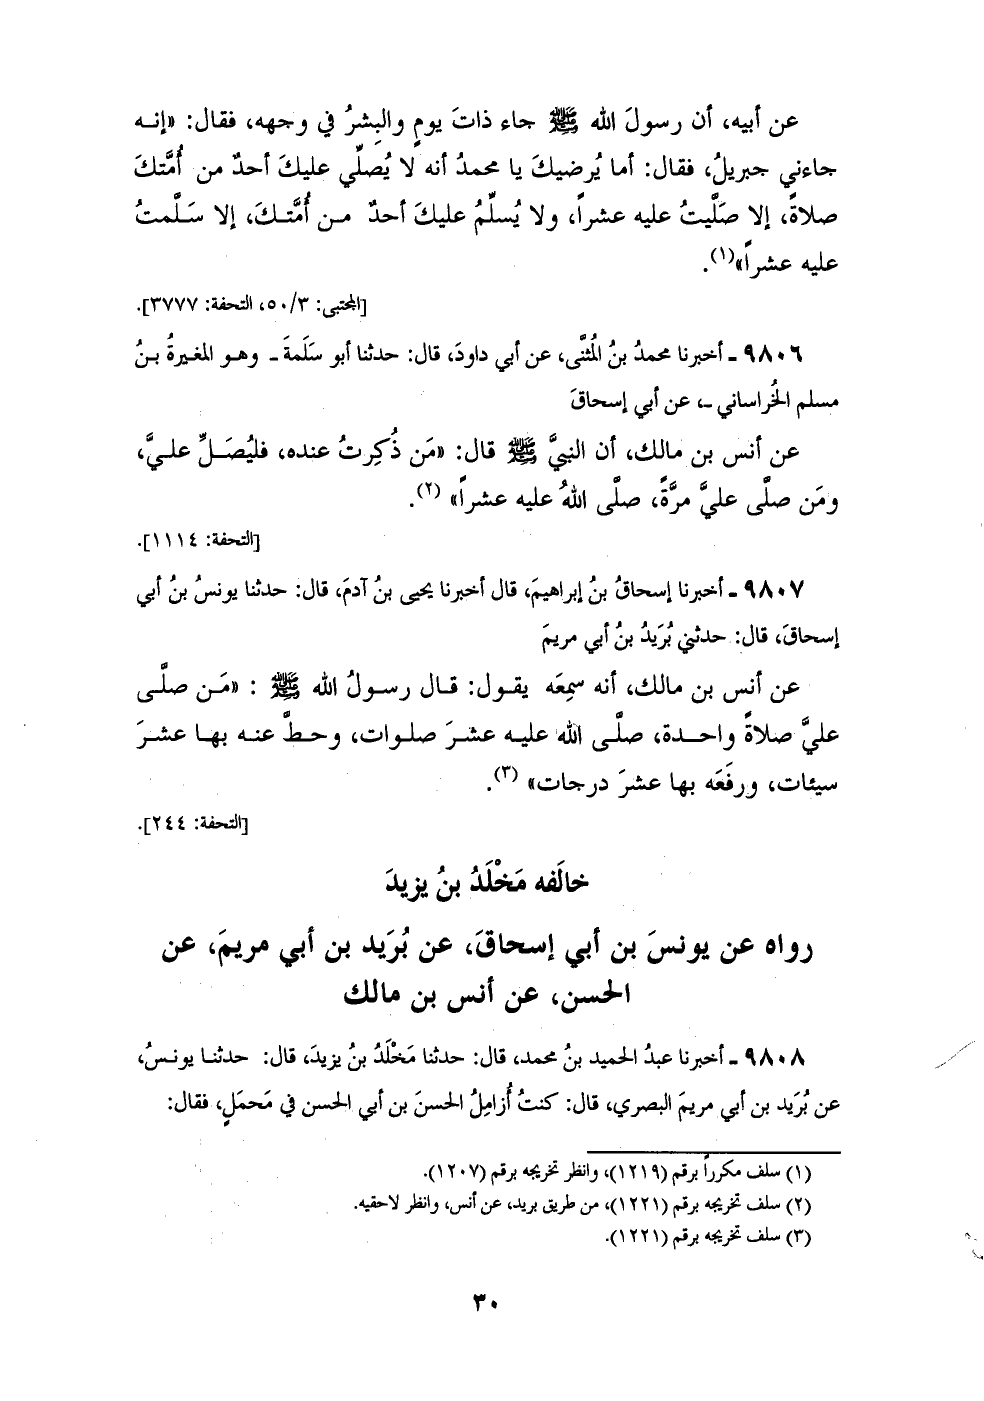 عن أبيه، أن رسولَ الله ﷺ جاء ذاتَ يومٍ والبِشرُ في وجهه، فقال: «إنه
جاءني جبريلُ، فقال: أما يُرضيكَ يا محمدُ أنه لا يُصلِّي عليكَ أحدٌ من أُمَّتكَ
صلاةً، إلا صَلَّيتُ عليه عشراً، ولا يُسلِّمُ عليكَ أحدٌ من أُمَّتكَ، إلا سَلَّمتُ
عليه عشراً»(١).
[المجتبى: ٥٠/٣، التحفة: ٣٧٧٧].
٩٨٠٦ ـ أخبرنا محمدُ بنُ المُثنَّى، عن أبي داودَ، قال: حدثنا أبو سَلَمةَ ـ وهو المغيرةُ بنُ
مسلم الخُراساني ـ، عن أبي إسحاقَ
عن أنس بن مالك، أن النبيَّ ﷺ قال: «مَن ذُكِرتُ عنده، فليُصَلِّ عليَّ،
ومَن صلَّى عليَّ مرَّةً، صلَّى اللهُ عليه عشراً» (٢).
[التحفة: ١١١٤].
٩٨٠٧ ـ أخبرنا إسحاقُ بنُ إبراهيمَ، قال أخبرنا يحيى بنُ آدمَ، قال: حدثنا يونسُ بنُ أبي
إسحاقَ، قال: حدثني بُرَيدُ بنُ أبي مريمَ
عن أنس بن مالك، أنه سمِعَه يقول: قال رسولُ الله ﷺ : «مَن صلَّى
عليَّ صلاةً واحدة، صلَّى الله عليه عشرَ صلوات، وحطَّ عنه بها عشرَ
سيئات، ورفَعَه بها عشرَ درجات» (٣).
[التحفة: ٢٤٤].
خالَفه مَخْلَدُ بنُ يزيدَ
رواه عن يونسَ بن أبي إسحاقَ، عن بُرَيد بن أبي مريمَ، عن
الحسن، عن أنس بن مالك
٩٨٠٨ ـ أخبرنا عبدُ الحميد بنُ محمد، قال: حدثنا مَخْلَدُ بنُ يزيدَ، قال: حدثنا يونسُ،
عن بُرَيد بن أبي مريمَ البصري، قال: كنتُ أُزامِلُ الحسنَ بن أبي الحسن في مَحمَلٍ، فقال:
(١) سلف مكرراً برقم (١٢١٩)، وانظر تخريجه برقم (١٢٠٧).
(٢) سلف تخريجه برقم (١٢٢١)، من طريق بريد، عن أنس، وانظر لاحقيه.
(٣) سلف تخريجه برقم (١٢٢١).
٣٠